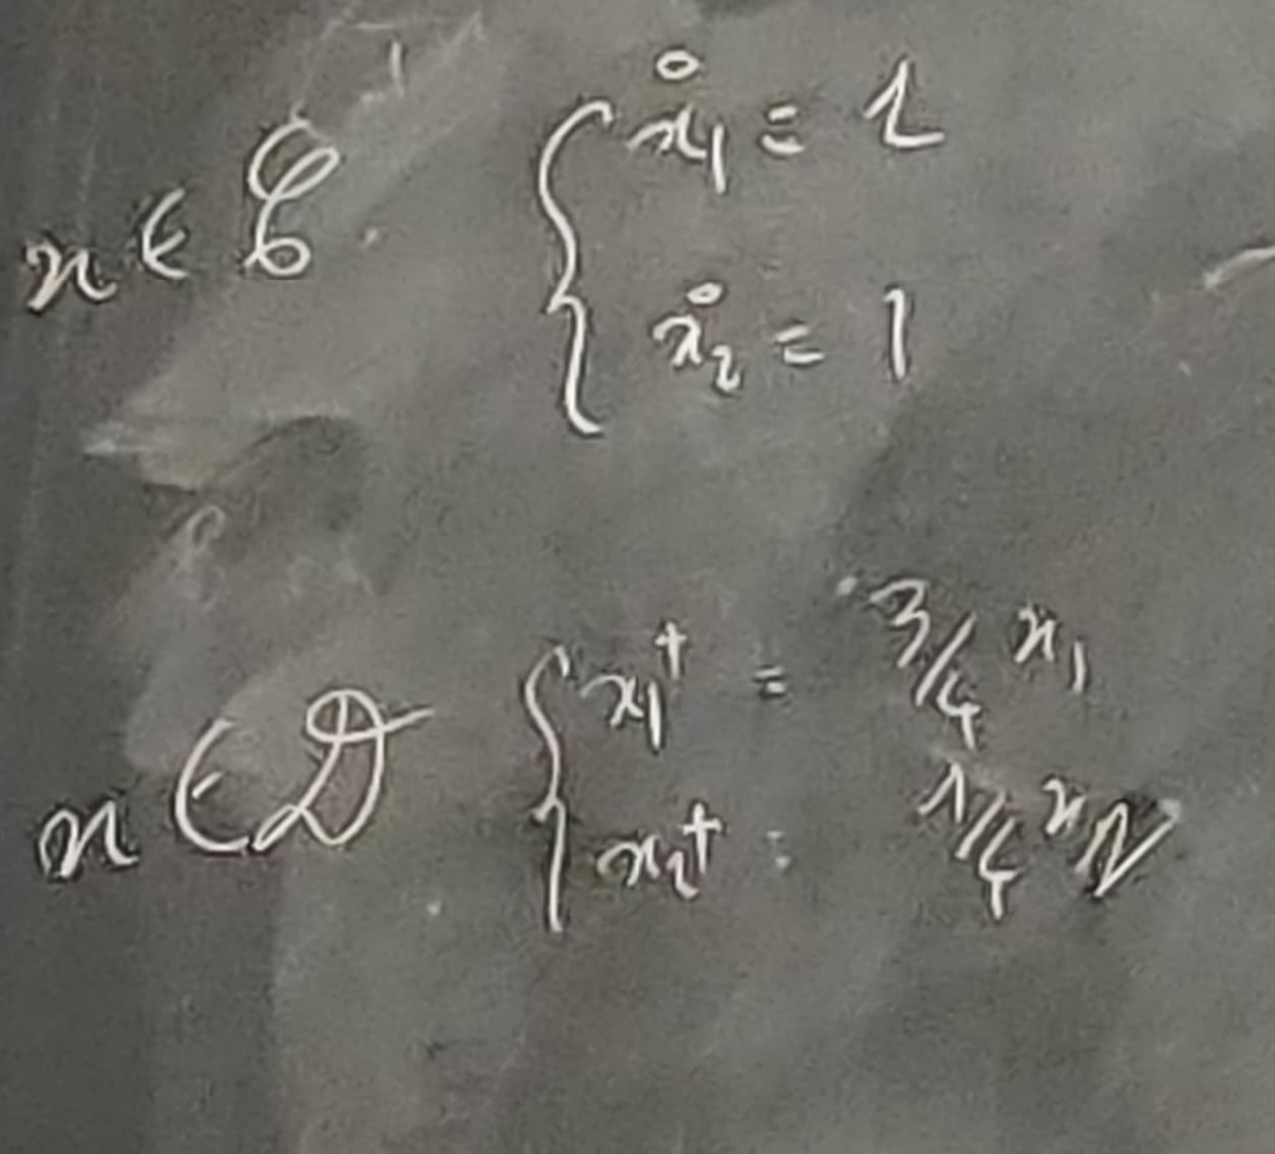 x ∈ 𝒞 { ẋ₁ = 2
ẋ₂ = 1
x ∈ 𝒟 { x₁⁺ = 3/4 x₁
x₂⁺ = 1/4 x₂